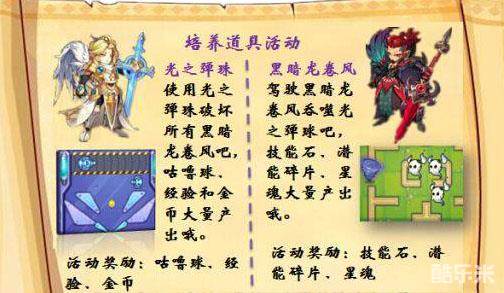 培养道具活动
光之弹珠
使用光之弹
珠破坏
所有黑暗
龙卷风吧，
咕噜球、
经验和金
币大量产
出哦。
活动奖励：咕噜球、经
验、金币
黑暗龙卷风
驾驶黑暗龙
卷风吞噬光
之弹球吧，
技能石、潜
能碎片、星
魂大量产出
哦。
活动奖励：技能石、潜
能碎片、星魂
酷乐米